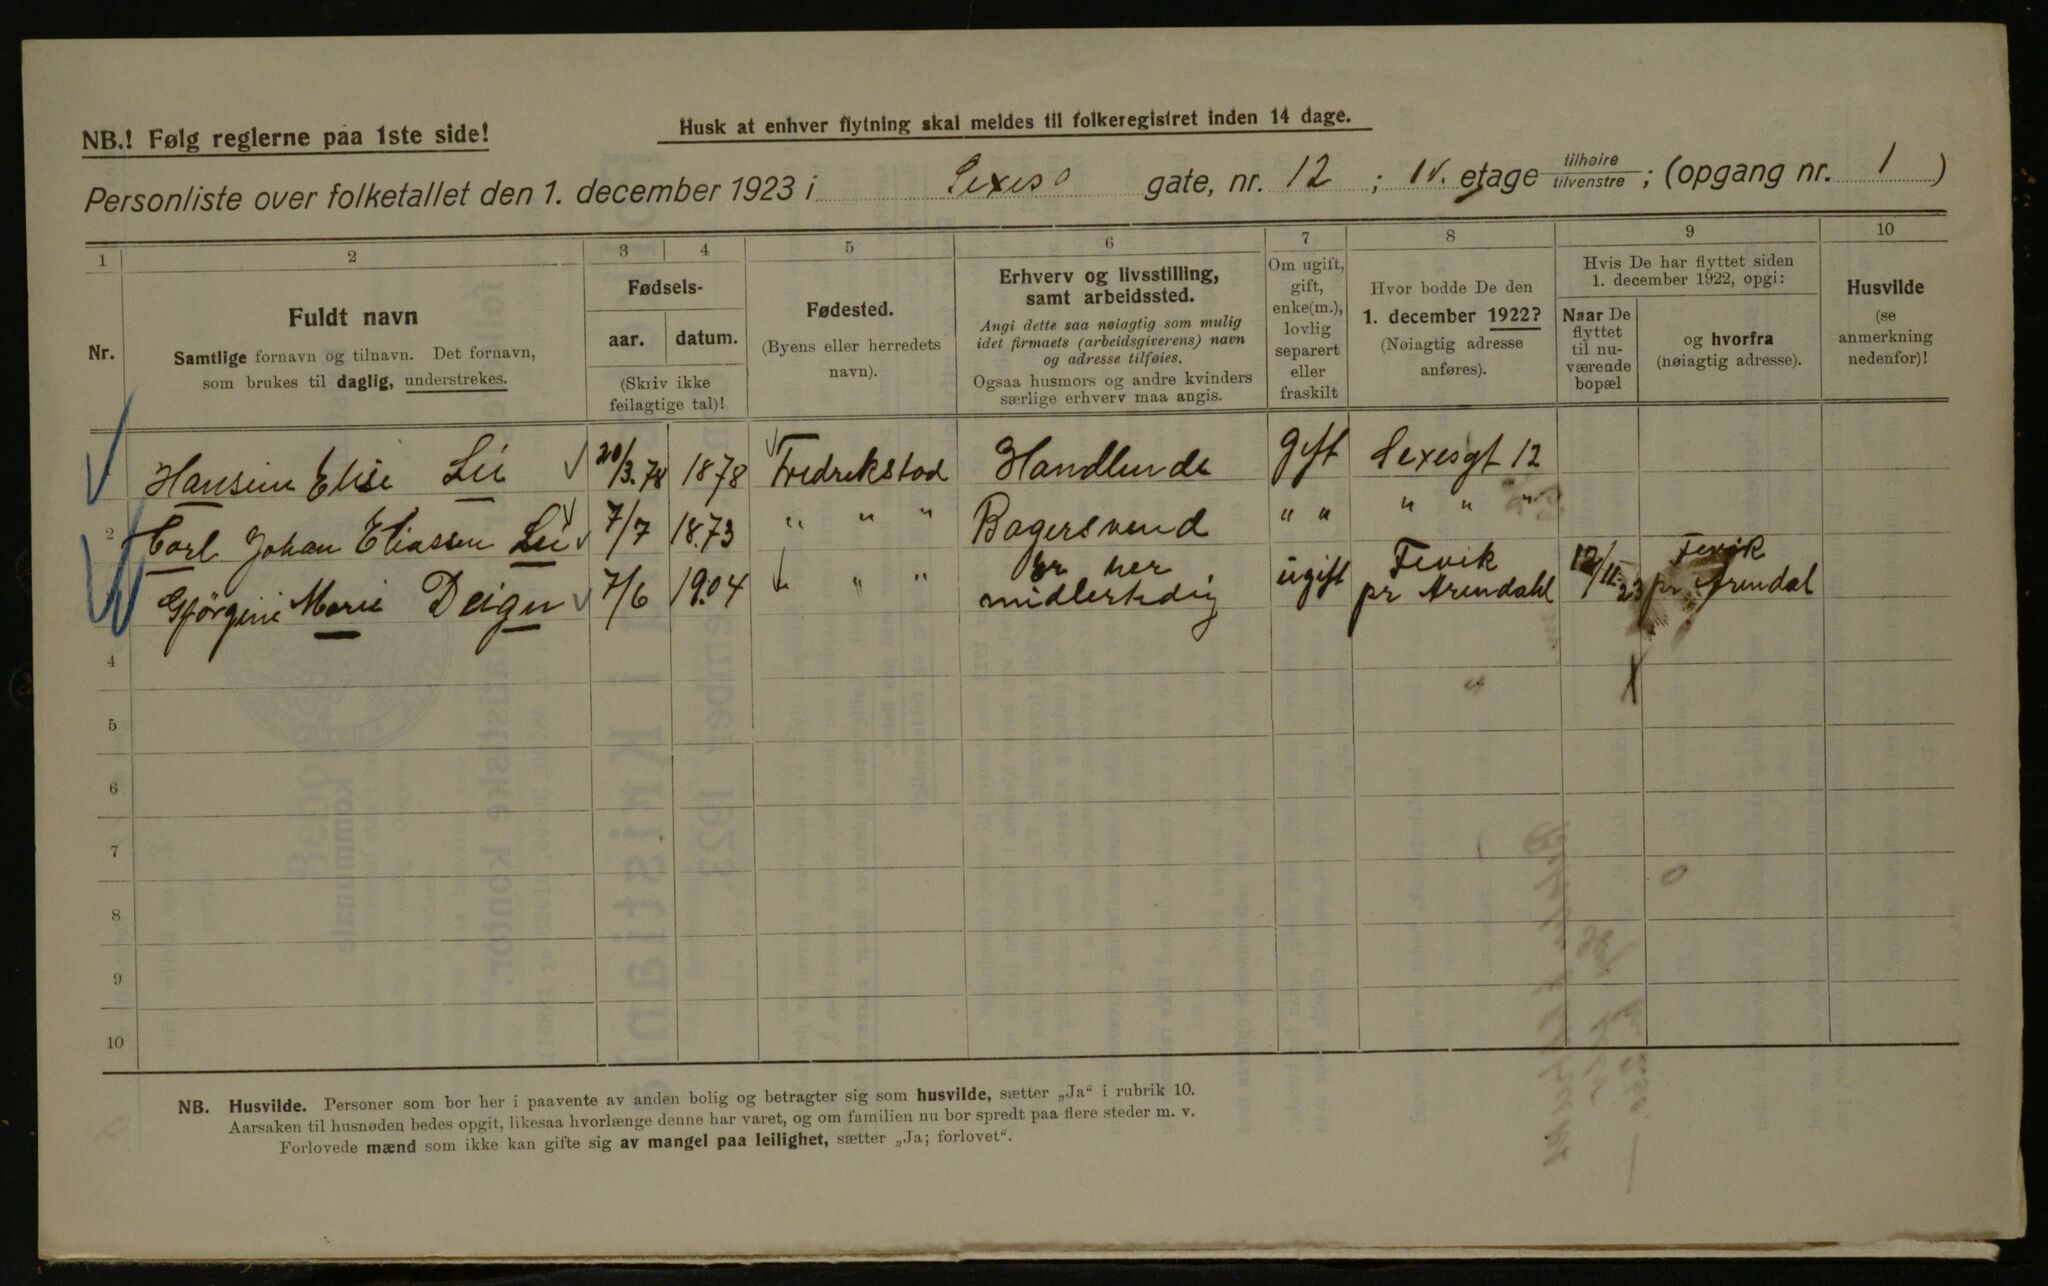 NB.! Følg reglerne paa 1ste side!
Husk at enhver flytning skal meldes til folkeregistret inden 14 dage.
Personliste over folketallet den 1. december 1923 i Sexes gate, nr. 12 ; IV. etage tilhøire tilvenstre ; (opgang nr. 1 )
1 2 3 4 5 6 7 8 9 10
Nr.
Fuldt navn
Samtlige fornavn og tilnavn. Det fornavn,
som brukes til daglig, understrekes.
Fødsels-
aar. datum.
(Skriv ikke
feilagtige tal)!
Fødested.
(Byens eller herredets
navn).
Erhverv og livsstilling,
samt arbeidssted.
Angi dette saa nøiagtig som mulig
idet firmaets (arbeidsgiverens) navn
og adresse tilføies.
Ogsaa husmors og andre kvinders
særlige erhverv maa angis.
Om ugift,
gift,
enke(m.),
lovlig
separert
eller
fraskilt
Hvor bodde De den
1. december 1922?
(Nøiagtig adresse
anføres).
Hvis De har flyttet siden
1. december 1922, opgi:
Naar De
flyttet
til nu-
værende
bopæl
og hvorfra
(nøiagtig adresse).
Husvilde
(se
anmerkning
nedenfor)!
Hansine Elise Lie 20/3.78 1878 Fredrekstad Handlende gift Sexesgt 12
2 Carl Johan Eliassen Lie 7/7 1873 " " " Bagersvend " " " " "
Gjørgine Marie Deign 7/6 1904 " " er her midlertidig ugift Fevik pr Arendahl 12/11.23 Fevik pr Arendal
4
5
6
7
8
9
10
NB. Husvilde. Personer som bor her i paavente av anden bolig og betragter sig som husvilde, sætter „Ja“ i rubrik 10.
Aarsaken til husnøden bedes opgit, likesaa hvorlænge denne har varet, og om familien nu bor spredt paa flere steder m. v.
Forlovede mænd som ikke kan gifte sig av mangel paa leilighet, sætter „Ja; forlovet“.